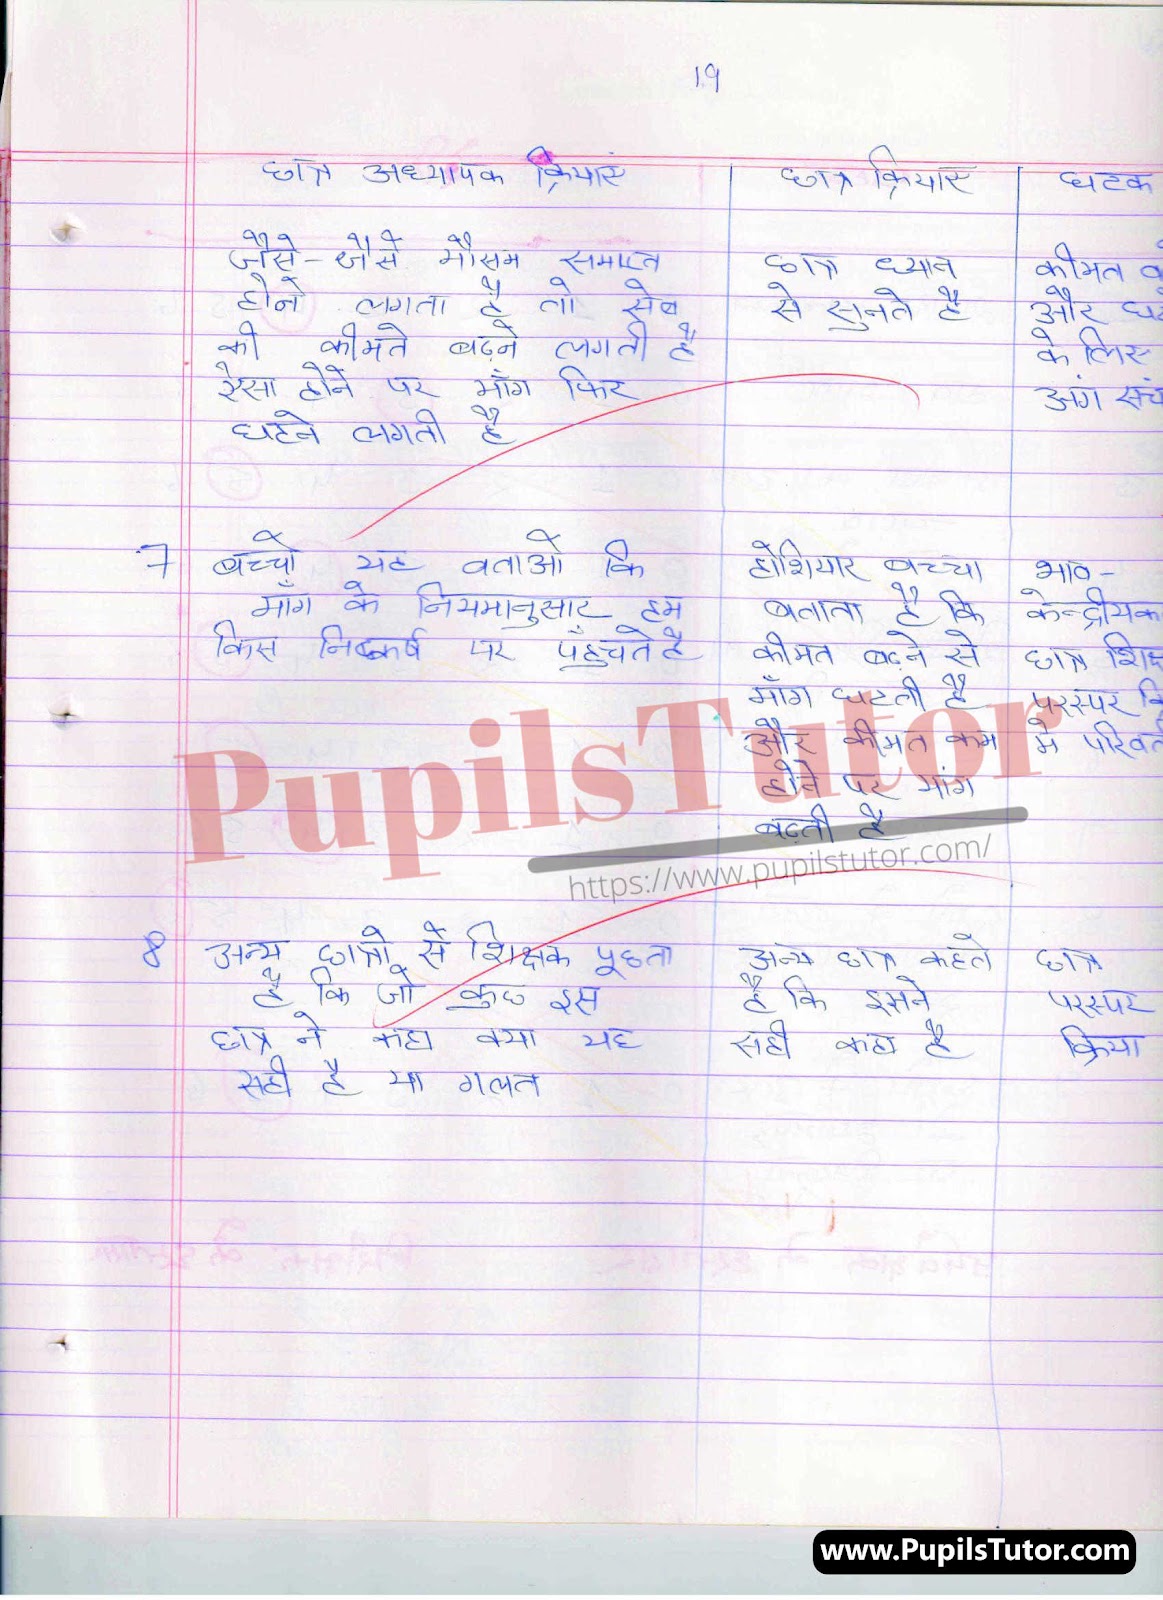 19
छात्र अध्यापक क्रियाएं
छात्र क्रियाएं
घटक
जैसे-जैसे मौसम समाप्त
होने लगता है तो सेब
की कीमते बढ़ने लगती है
ऐसा होने पर माँग फिर
घटने लगती है
छात्र ध्यान
से सुनते है
कीमत
और
के लिए
अंग
7 बच्चो यह बताओ कि
माँग के नियमानुसार हम
किस निष्कर्ष पर पहुँचते है
होशियार बच्चा
बताता है कि
कीमत बढ़ने से
माँग घटती है
और कीमत कम
होने पर मांग
बढ़ती है
भाव-
केन्द्रीयक
छात्र
परस्पर
में
8 अन्य छात्रो से शिक्षक पूछता
है कि जो कुछ इस
छात्र ने कहा क्या यह
सही है या गलत
अन्य छात्र कहते
है कि इसने
सही कहा है
छात्र
परस्पर
क्रिया
PupilsTutor
https://www.pupilstutor.com/
www.PupilsTutor.com